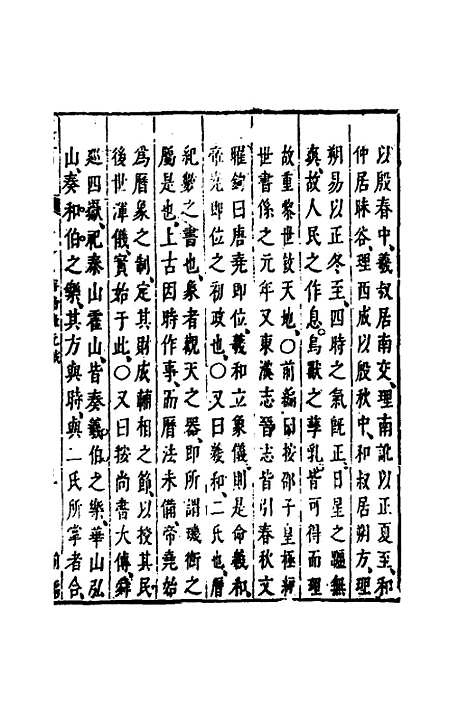 以殷春中羲叔居南交理南訛以正夏至和
仲居昧谷理西成以殷秋中和叔居朔方理
朔易以正冬至四時之氣旣正日星之躔無
真故人民之作息鳥獸之孳乳皆可得而理
故重黎世敘天地〇前編曰按邵子皇極經
世書係之元年又東漢志晉志皆引春秋文
耀鉤曰唐堯即位羲和立象儀則是命羲和
帝堯即位之初政也〇又曰羲和二氏也曆
紀數之書也象者觀天之器即所謂璣衡之
屬是也上古因時作事而曆法未備帝堯始
為曆象之制定其財成輔相之節以授其民
後世渾儀實始于此〇又曰按尚書大傳舜
廵四嶽祀泰山霍山皆奏羲伯之樂華山弘
山奏和伯之樂其方與時與二氏所掌者合